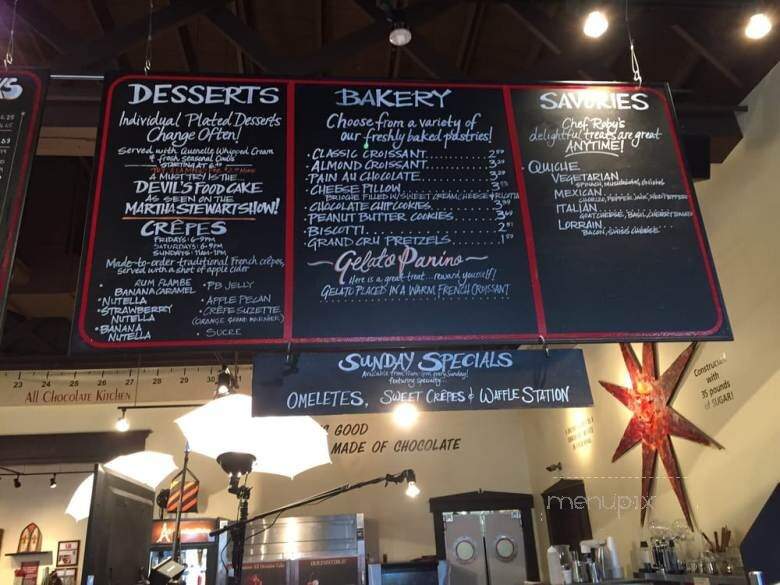 DESSERTS
Individual Plated Desserts
Change Often!
Served with Quenelle Whipped Cream
& fresh Seasonal Coulis
STARTING AT
A MUST TRY IS THE
DEVIL'S FOOD CAKE
AS SEEN ON THE
MARTHA STEWART SHOW!
CRÊPES
FRIDAYS: 6-9PM
SATURDAYS: 6-9PM
SUNDAYS: 11AM-1PM
Made-to-order traditional French crêpes,
served with a shot of apple cider
RUM FLAMBE
BANANA CARAMEL
• NUTELLA
• STRAWBERRY
NUTELLA
• BANANA
NUTELLA
• PB JELLY
• APPLE PECAN
• CRÊPE SUZETTE
(ORANGE GRAND MARNIER)
• SUCRE
BAKERY
Choose from a variety of
our freshly baked pastries!
• CLASSIC CROISSANT
• ALMOND CROISSANT
• PAIN AU CHOCOLATE
• CHEESE PILLOW
BRIOCHE FILLED W/ SWEET CREAM CHEESE & RICOTTA
• CHOCOLATE CHIP COOKIES
• PEANUT BUTTER COOKIES
• BISCOTTI
• GRAND CRU PRETZELS
~ Gelato Panino ~
Here is a great treat... reward yourself!
GELATO PLACED IN A WARM FRENCH CROISSANT
SAVORIES
Chef Roby's
delightful treats are great
ANYTIME!
• QUICHE
VEGETARIAN
SPINACH, MUSHROOMS,
MEXICAN
CHORIZO, PEPPER JACK, RED PEPPER
ITALIAN
GOAT CHEESE, BASIL, CHERRY TOMATO
LORRAIN
BACON, SWISS CHEESE
SUNDAY SPECIALS
Available from 10am-1pm every Sunday!
featuring specialty...
OMELETES, SWEET CRÊPES & WAFFLE STATION
23 24 25 26 27 28 29 30 31
All Chocolate Kitchen
GOOD
MADE OF CHOCOLATE
Constructed
with
35 pounds
of SUGAR!
menupix